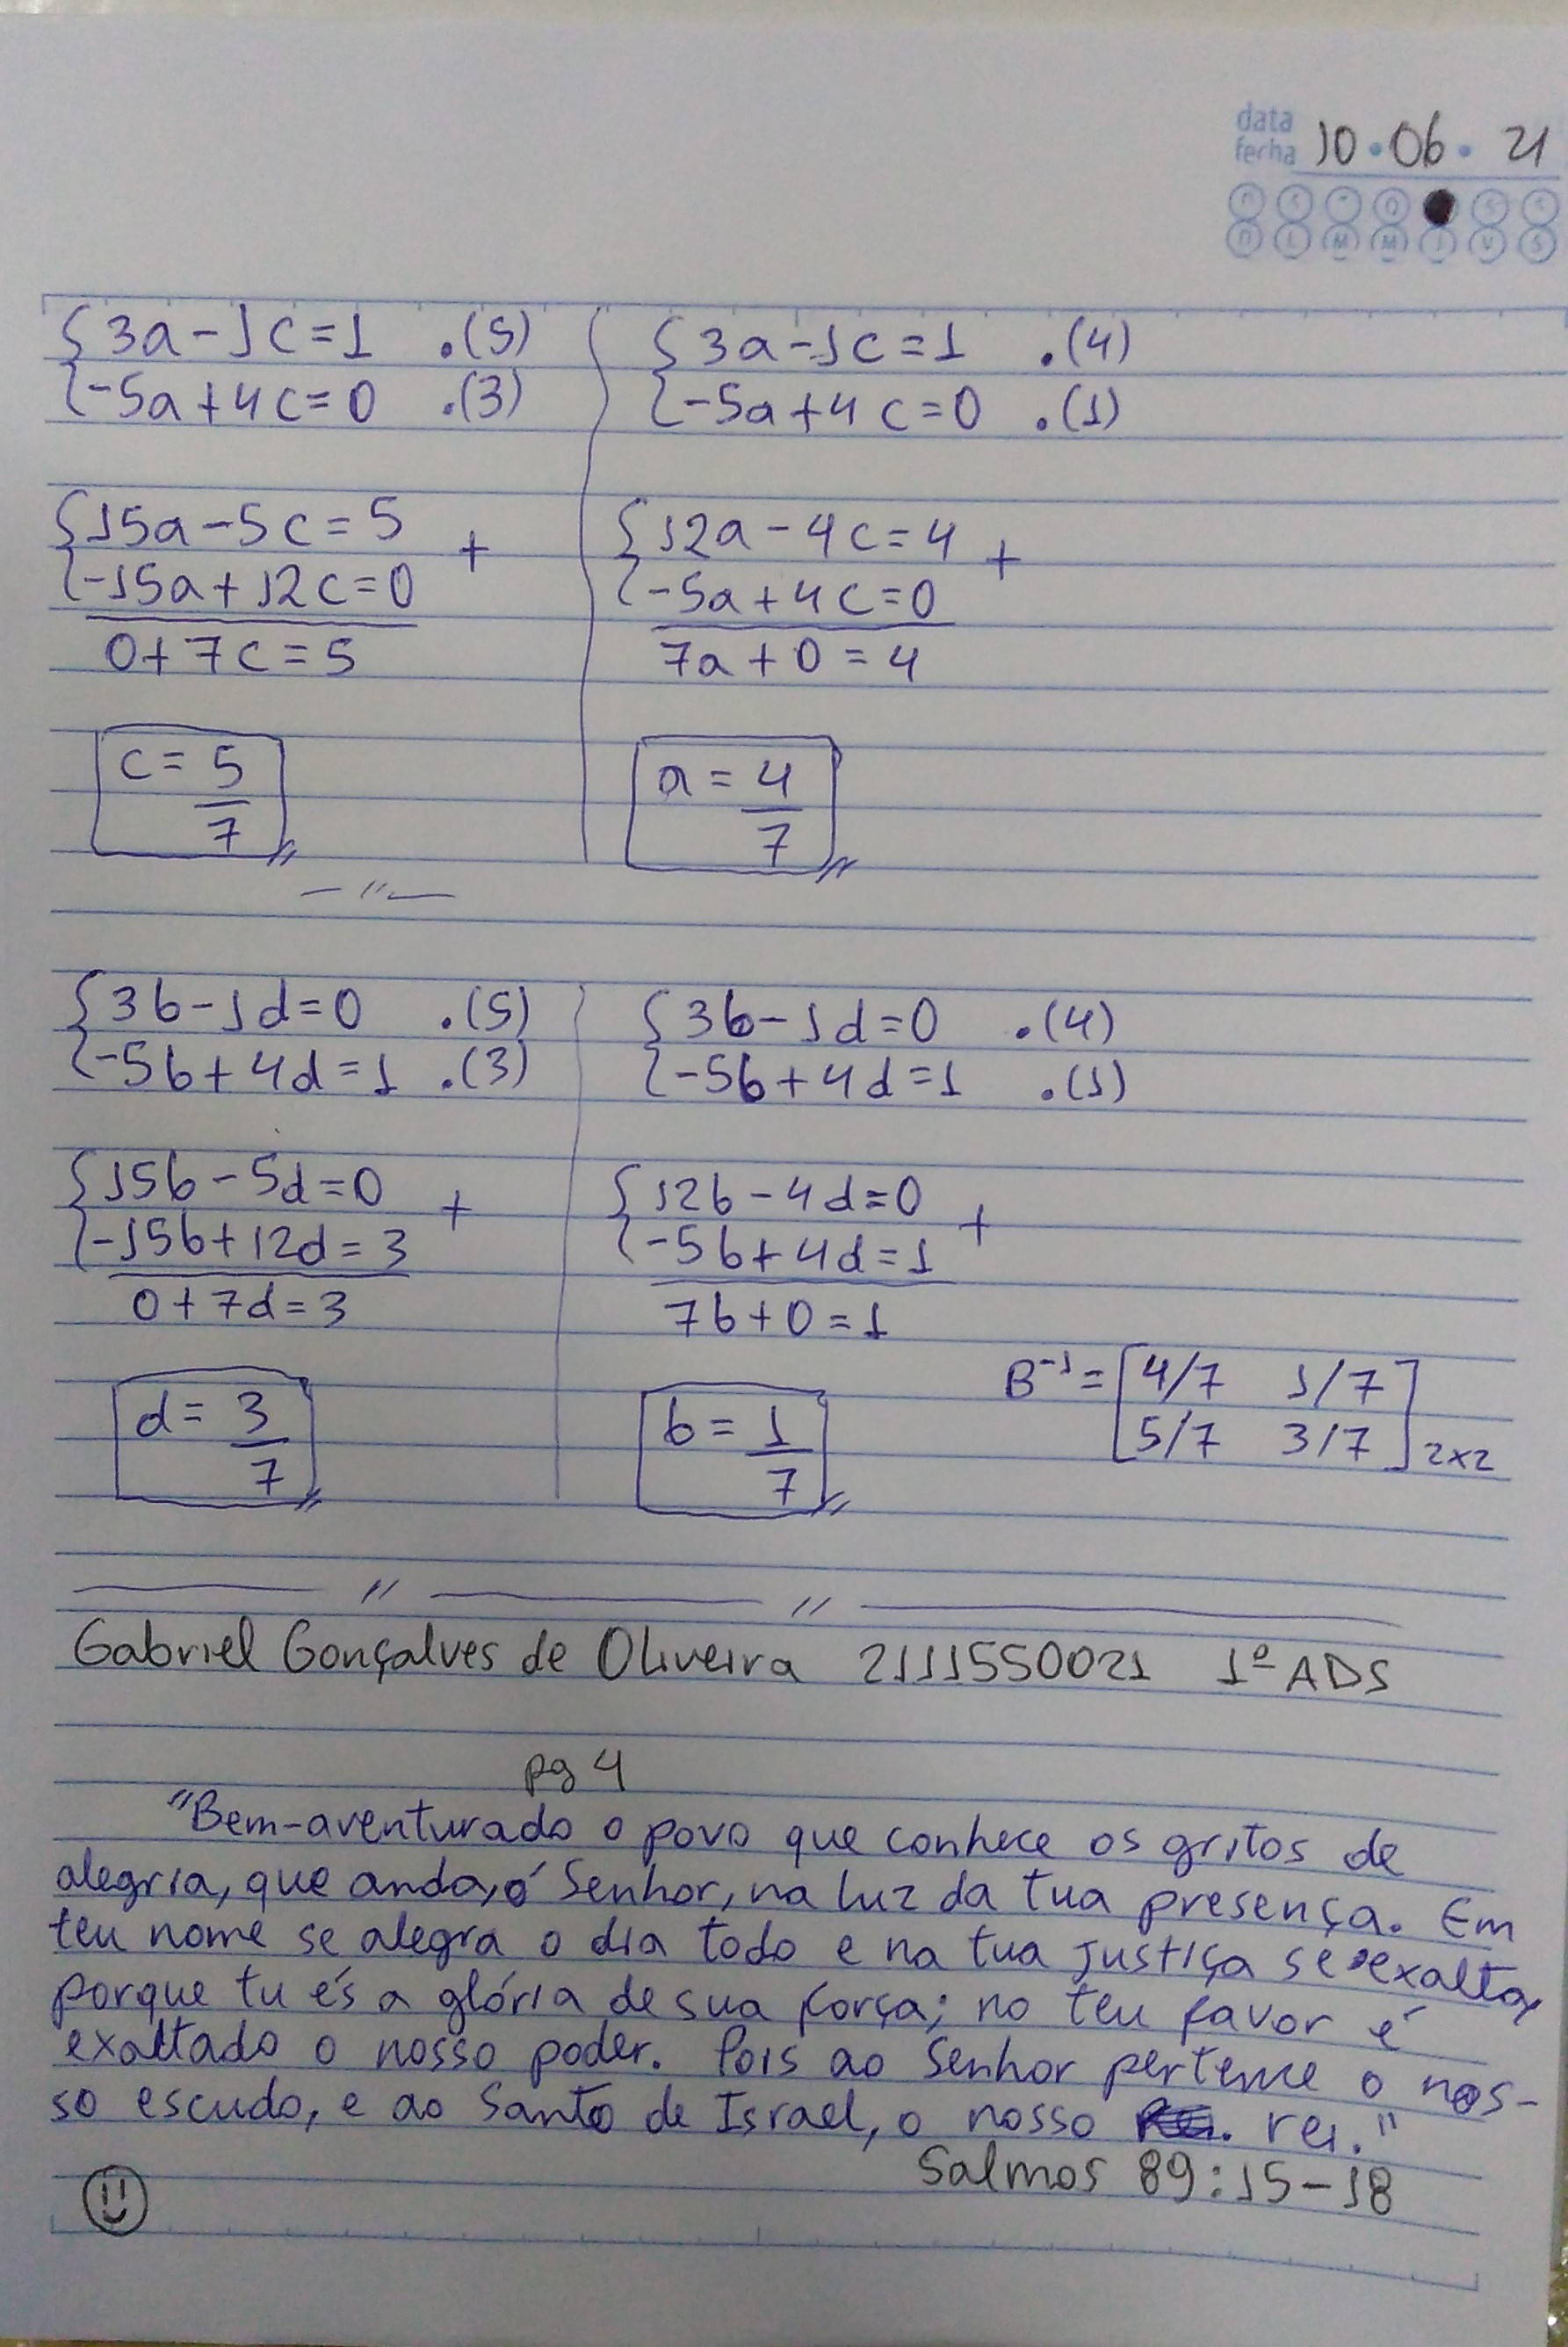 data
fecha 10 • 06 • 21
D S T Q S S
D L M M J V S
{3a-1c=1 .(5)
{-5a+4c=0 .(3)
{15a-5c=5 +
{-15a+12c=0
0+7c=5
c=5/7
{3a-1c=1 .(4)
{-5a+4c=0 .(1)
{12a-4c=4 +
{-5a+4c=0
7a+0=4
a=4/7
— " —
{3b-1d=0 .(5)
{-5b+4d=1 .(3)
{15b-5d=0 +
{-15b+12d=3
0+7d=3
d=3/7
{3b-1d=0 .(4)
{-5b+4d=1 .(1)
{12b-4d=0 +
{-5b+4d=1
7b+0=1
b=1/7
B⁻¹=[4/7 1/7
5/7 3/7]2x2
Gabriel Gonçalves de Oliveira 2111550021 1º ADS
pg 4
"Bem-aventurado o povo que conhece os gritos de
alegria, que anda, ó Senhor, na luz da tua presença. Em
teu nome se alegra o dia todo e na tua justiça se exalta,
porque tu és a glória de sua força; no teu favor é
exaltado o nosso poder. Pois ao Senhor pertence o nos-
so escudo, e ao Santo de Israel, o nosso rei."
Salmos 89:15-18